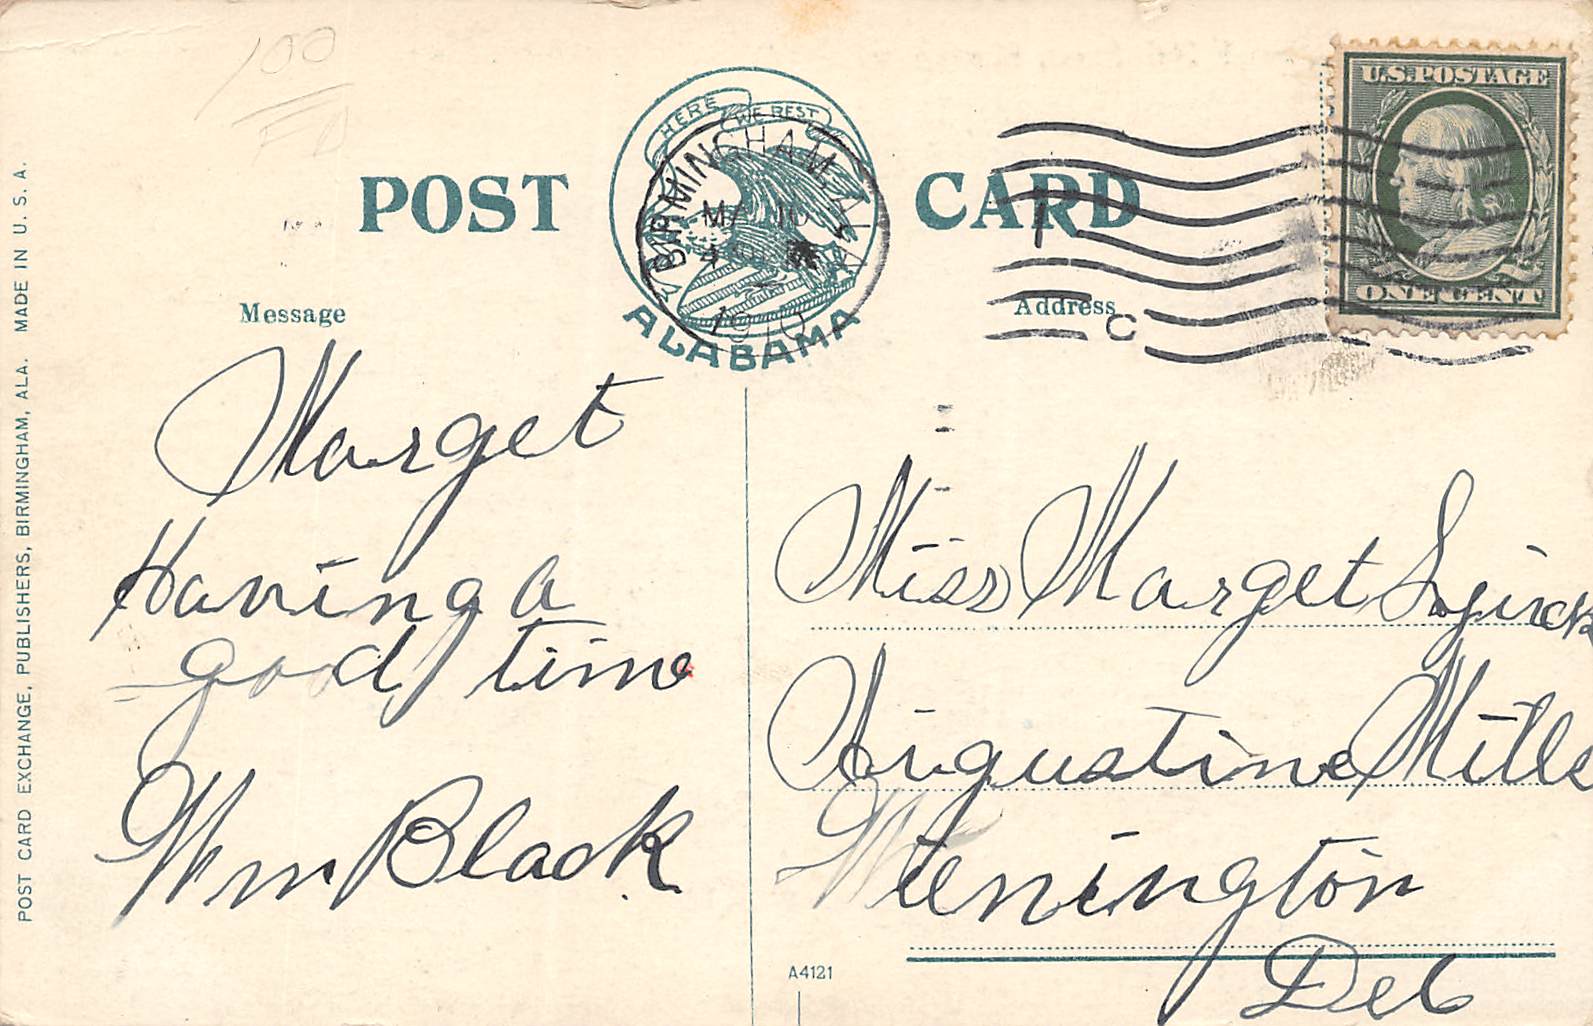 100
POST CARD
HERE WE REST
ALABAMA
BIRMINGHAM, ALA
MA 10
1910
U.S. POSTAGE
ONE CENT
C
Message
Address
Marget
Having a
good time
Wm Black
Miss Marget
Augustine Mills
Wilmington
Del
A4121
POST CARD EXCHANGE, PUBLISHERS, BIRMINGHAM, ALA. MADE IN U. S. A.